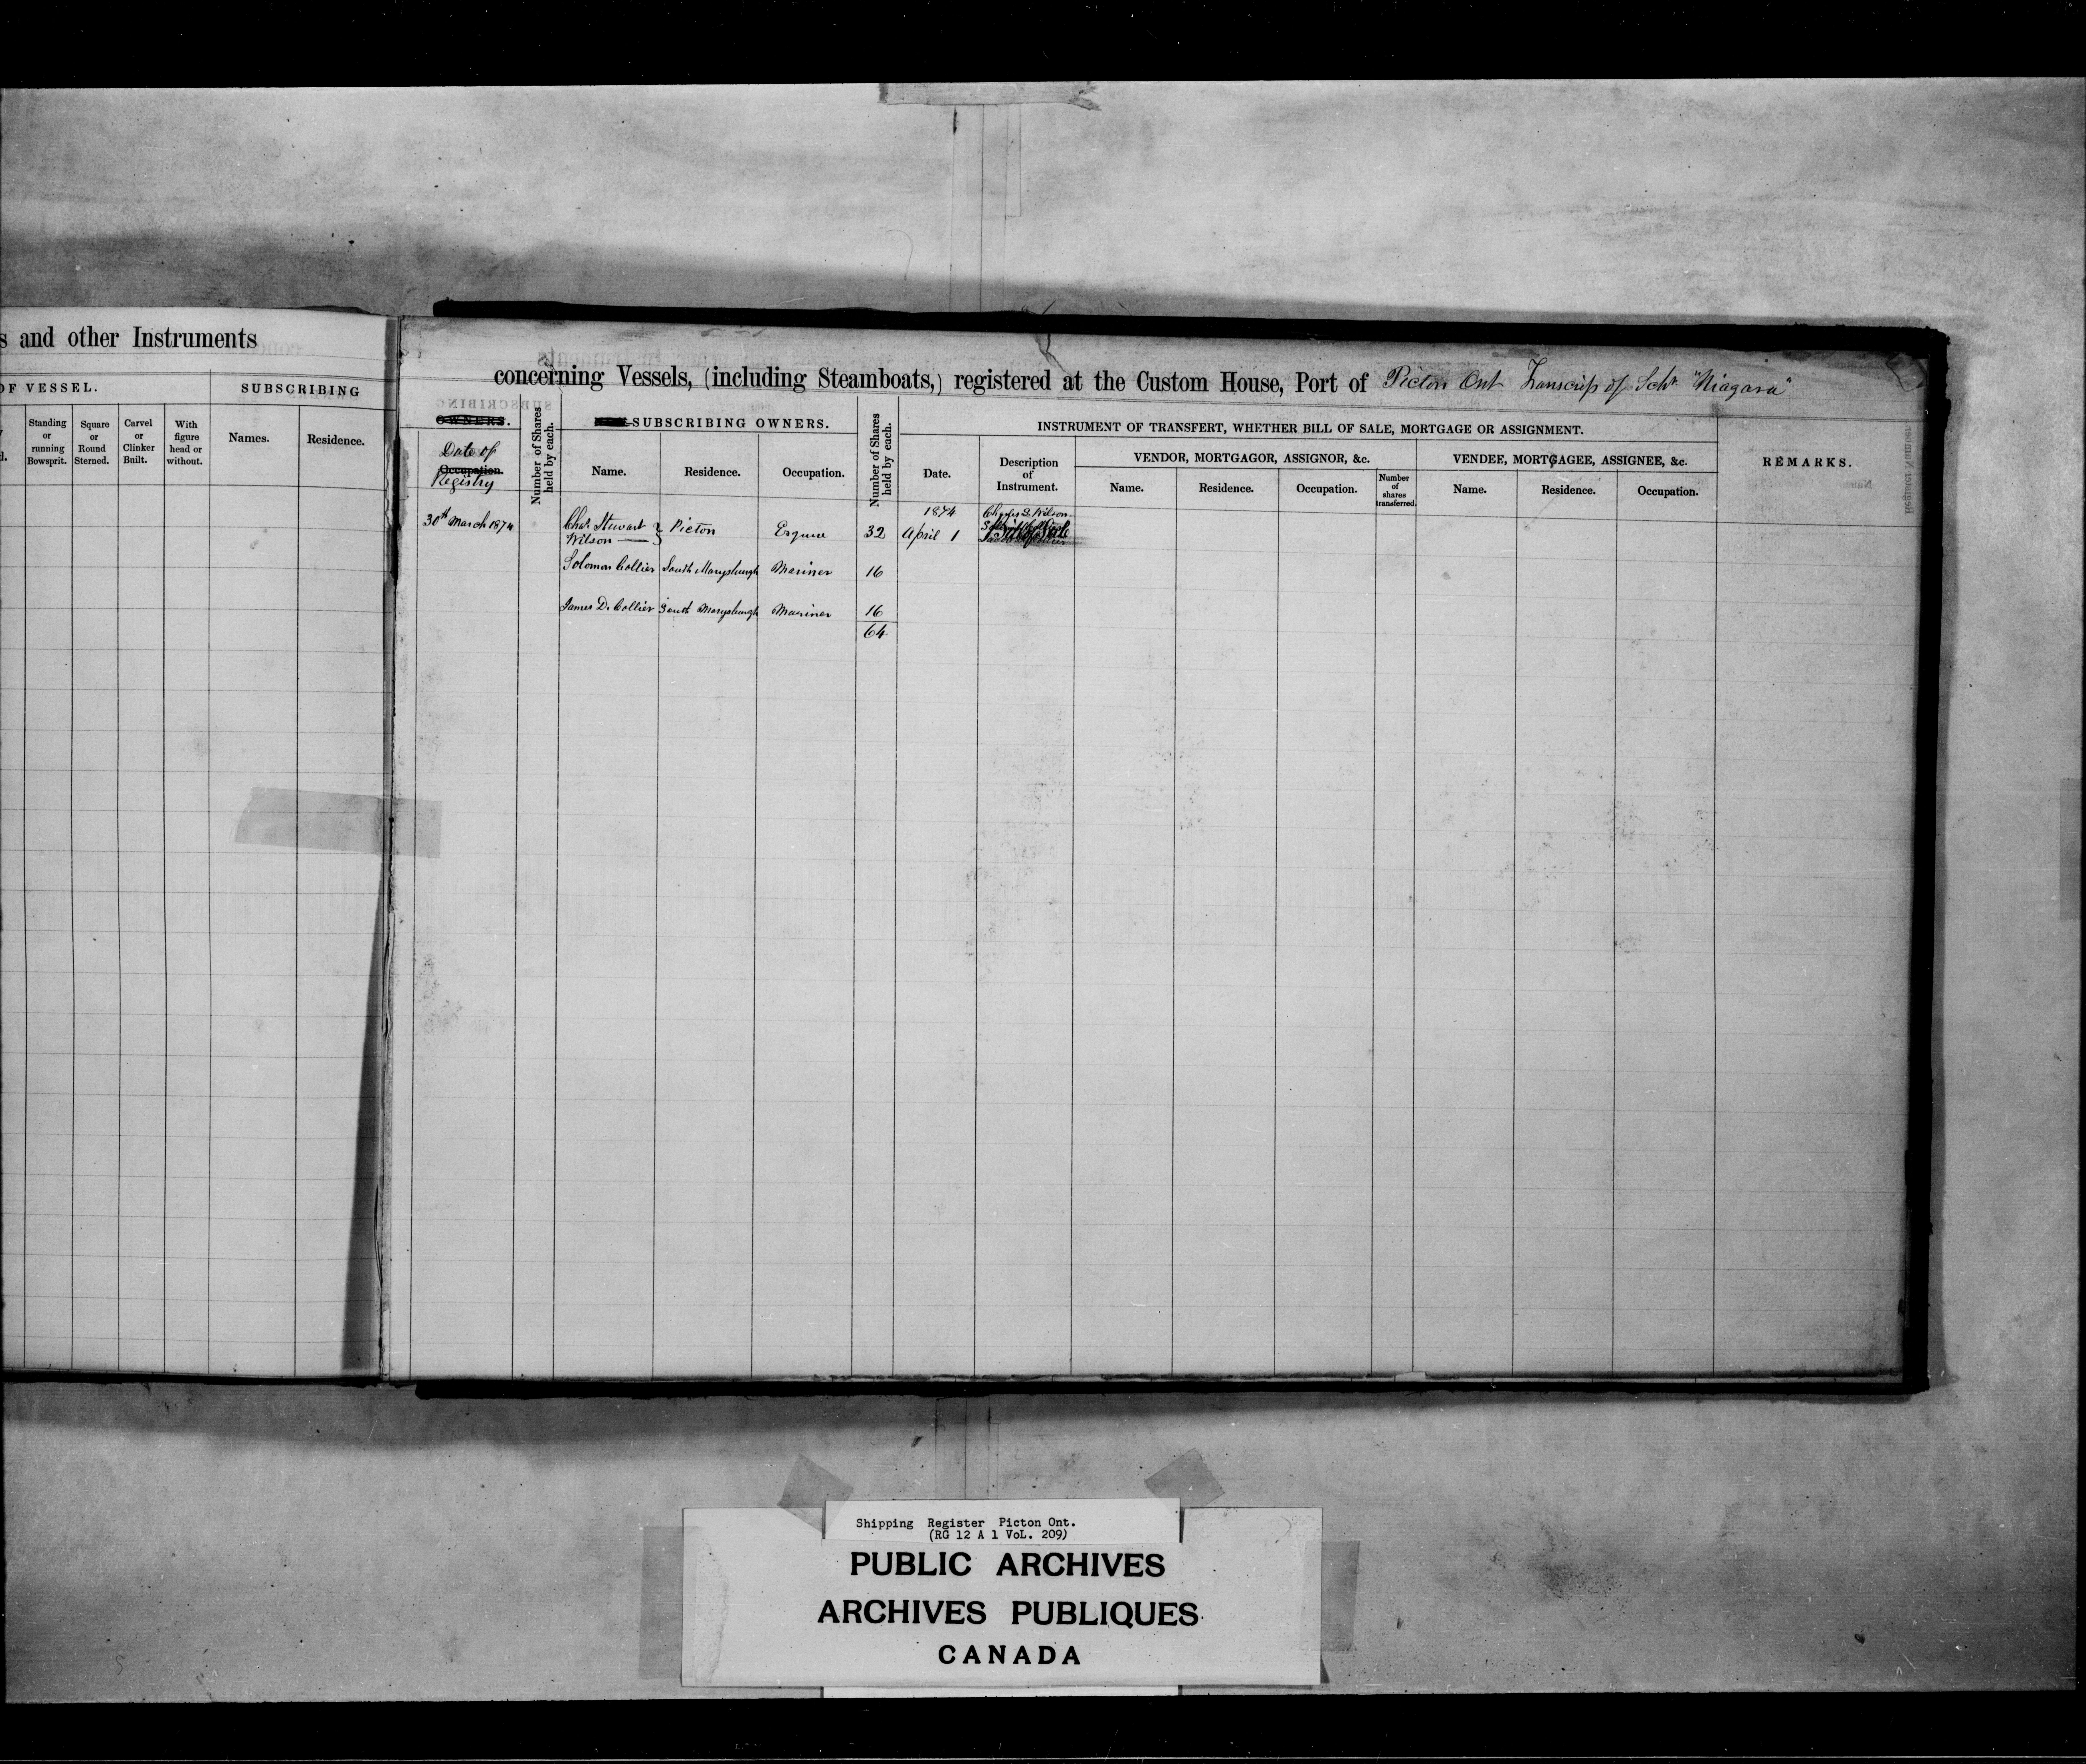 s and other Instruments
OF VESSEL.
SUBSCRIBING
Standing or running Bowsprit.
Square or Round Sterned.
Carvel or Clinker Built.
With figure head or without.
Names.
Residence.
concerning Vessels, (including Steamboats,) registered at the Custom House, Port of Picton Ont Transcript of Schr "Niagara"
OWNERS.
Date of
Occupation.
Registry
Number of Shares held by each.
SUBSCRIBING OWNERS.
Name.
Residence.
Occupation.
Number of Shares held by each.
INSTRUMENT OF TRANSFERT, WHETHER BILL OF SALE, MORTGAGE OR ASSIGNMENT.
Date.
Description of Instrument.
VENDOR, MORTGAGOR, ASSIGNOR, &c.
Name.
Residence.
Occupation.
Number of shares transferred.
VENDEE, MORTGAGEE, ASSIGNEE, &c.
Name.
Residence.
Occupation.
REMARKS.
30th March 1874
Chas Stewart
Wilson
Picton
Esquire
32
1874
April 1
Charles S. Wilson
Solomon Collier South Marysburgh Mariner 16
James D. Collier South Marysburgh Mariner 16
64
Shipping Register Picton Ont.
(RG 12 A 1 VoL. 209)
PUBLIC ARCHIVES
ARCHIVES PUBLIQUES
CANADA